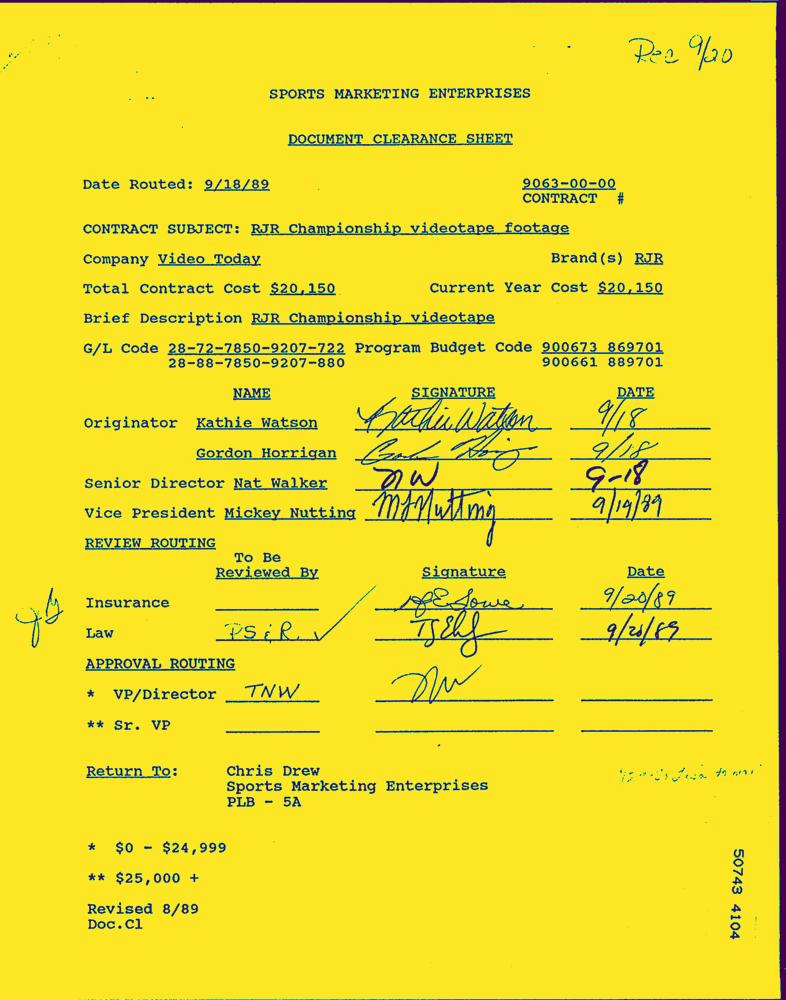 Rec 9/20
SPORTS MARKETING ENTERPRISES
DOCUMENT CLEARANCE SHEET
Date Routed: 9/18/89 9063-00-00
CONTRACT #
CONTRACT SUBJECT: RJR Championship videotape footage
Company Video Today Brand(s) RJR
Total Contract Cost $20,150 Current Year Cost $20,150
Brief Description RJR Championship videotape
G/L Code 28-72-7850-9207-722 Program Budget Code 900673 869701
28-88-7850-9207-880 900661 889701
NAME SIGNATURE DATE
Originator Kathie Watson Kathie Watson 9/18
Gordon Horrigan 9/18
Senior Director Nat Walker NW 9-18
Vice President Mickey Nutting MJNutting 9/19/89
REVIEW ROUTING
To Be
Reviewed By Signature Date
Insurance 9/20/89
Law PS&R 9/20/89
APPROVAL ROUTING
* VP/Director TNW NW
** Sr. VP
Return To: Chris Drew
Sports Marketing Enterprises
PLB - 5A
* $0 - $24,999
** $25,000 +
Revised 8/89
Doc.Cl
50743 4104